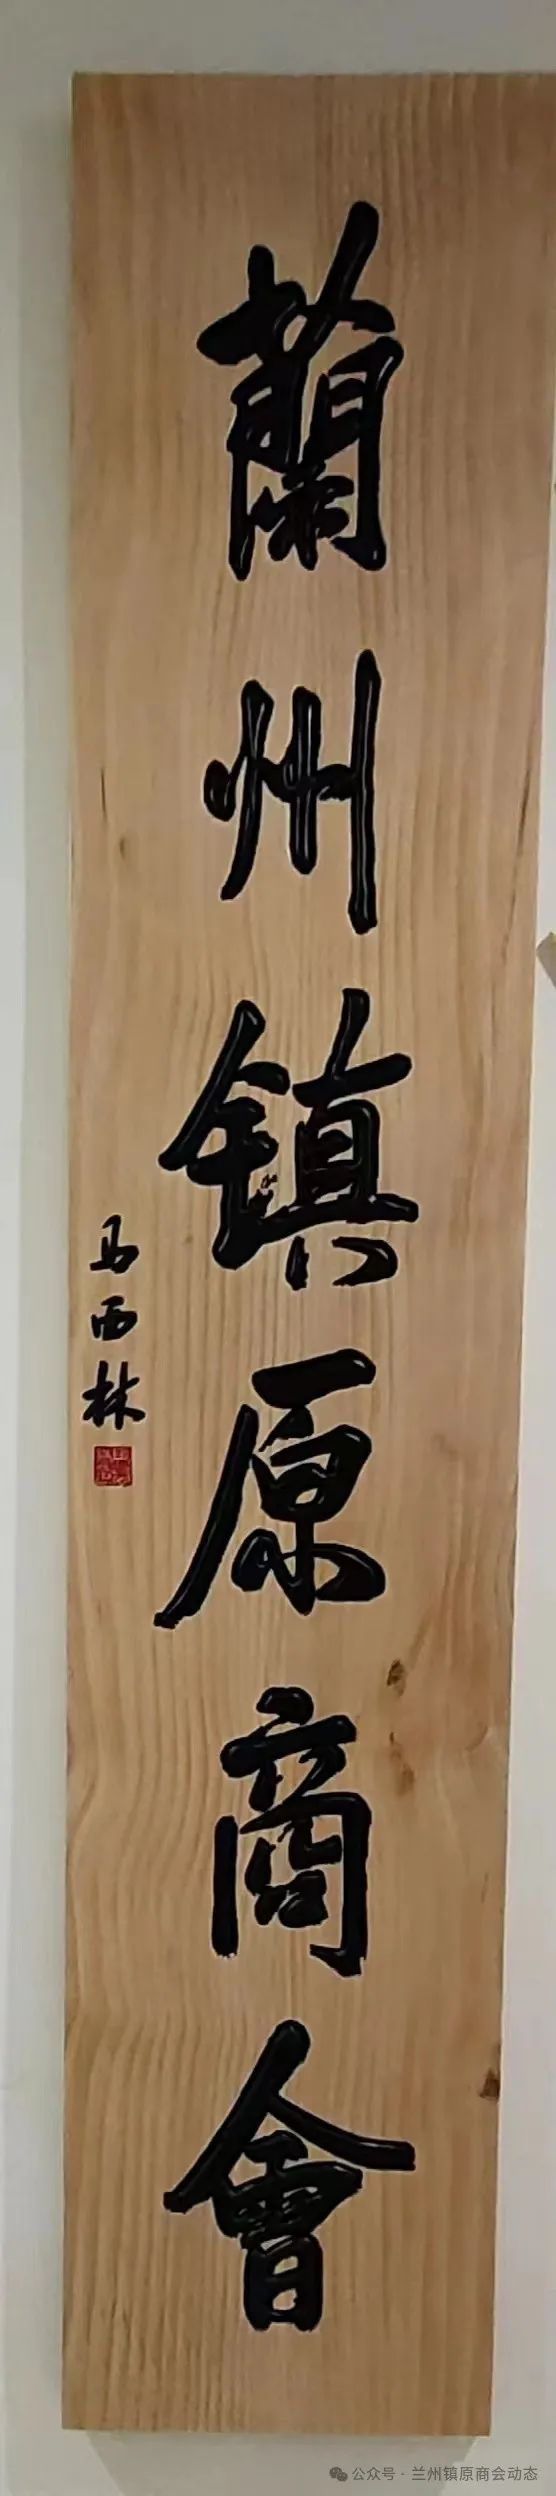 蘭州镇原商會
马西林
公众号·兰州镇原商会动态